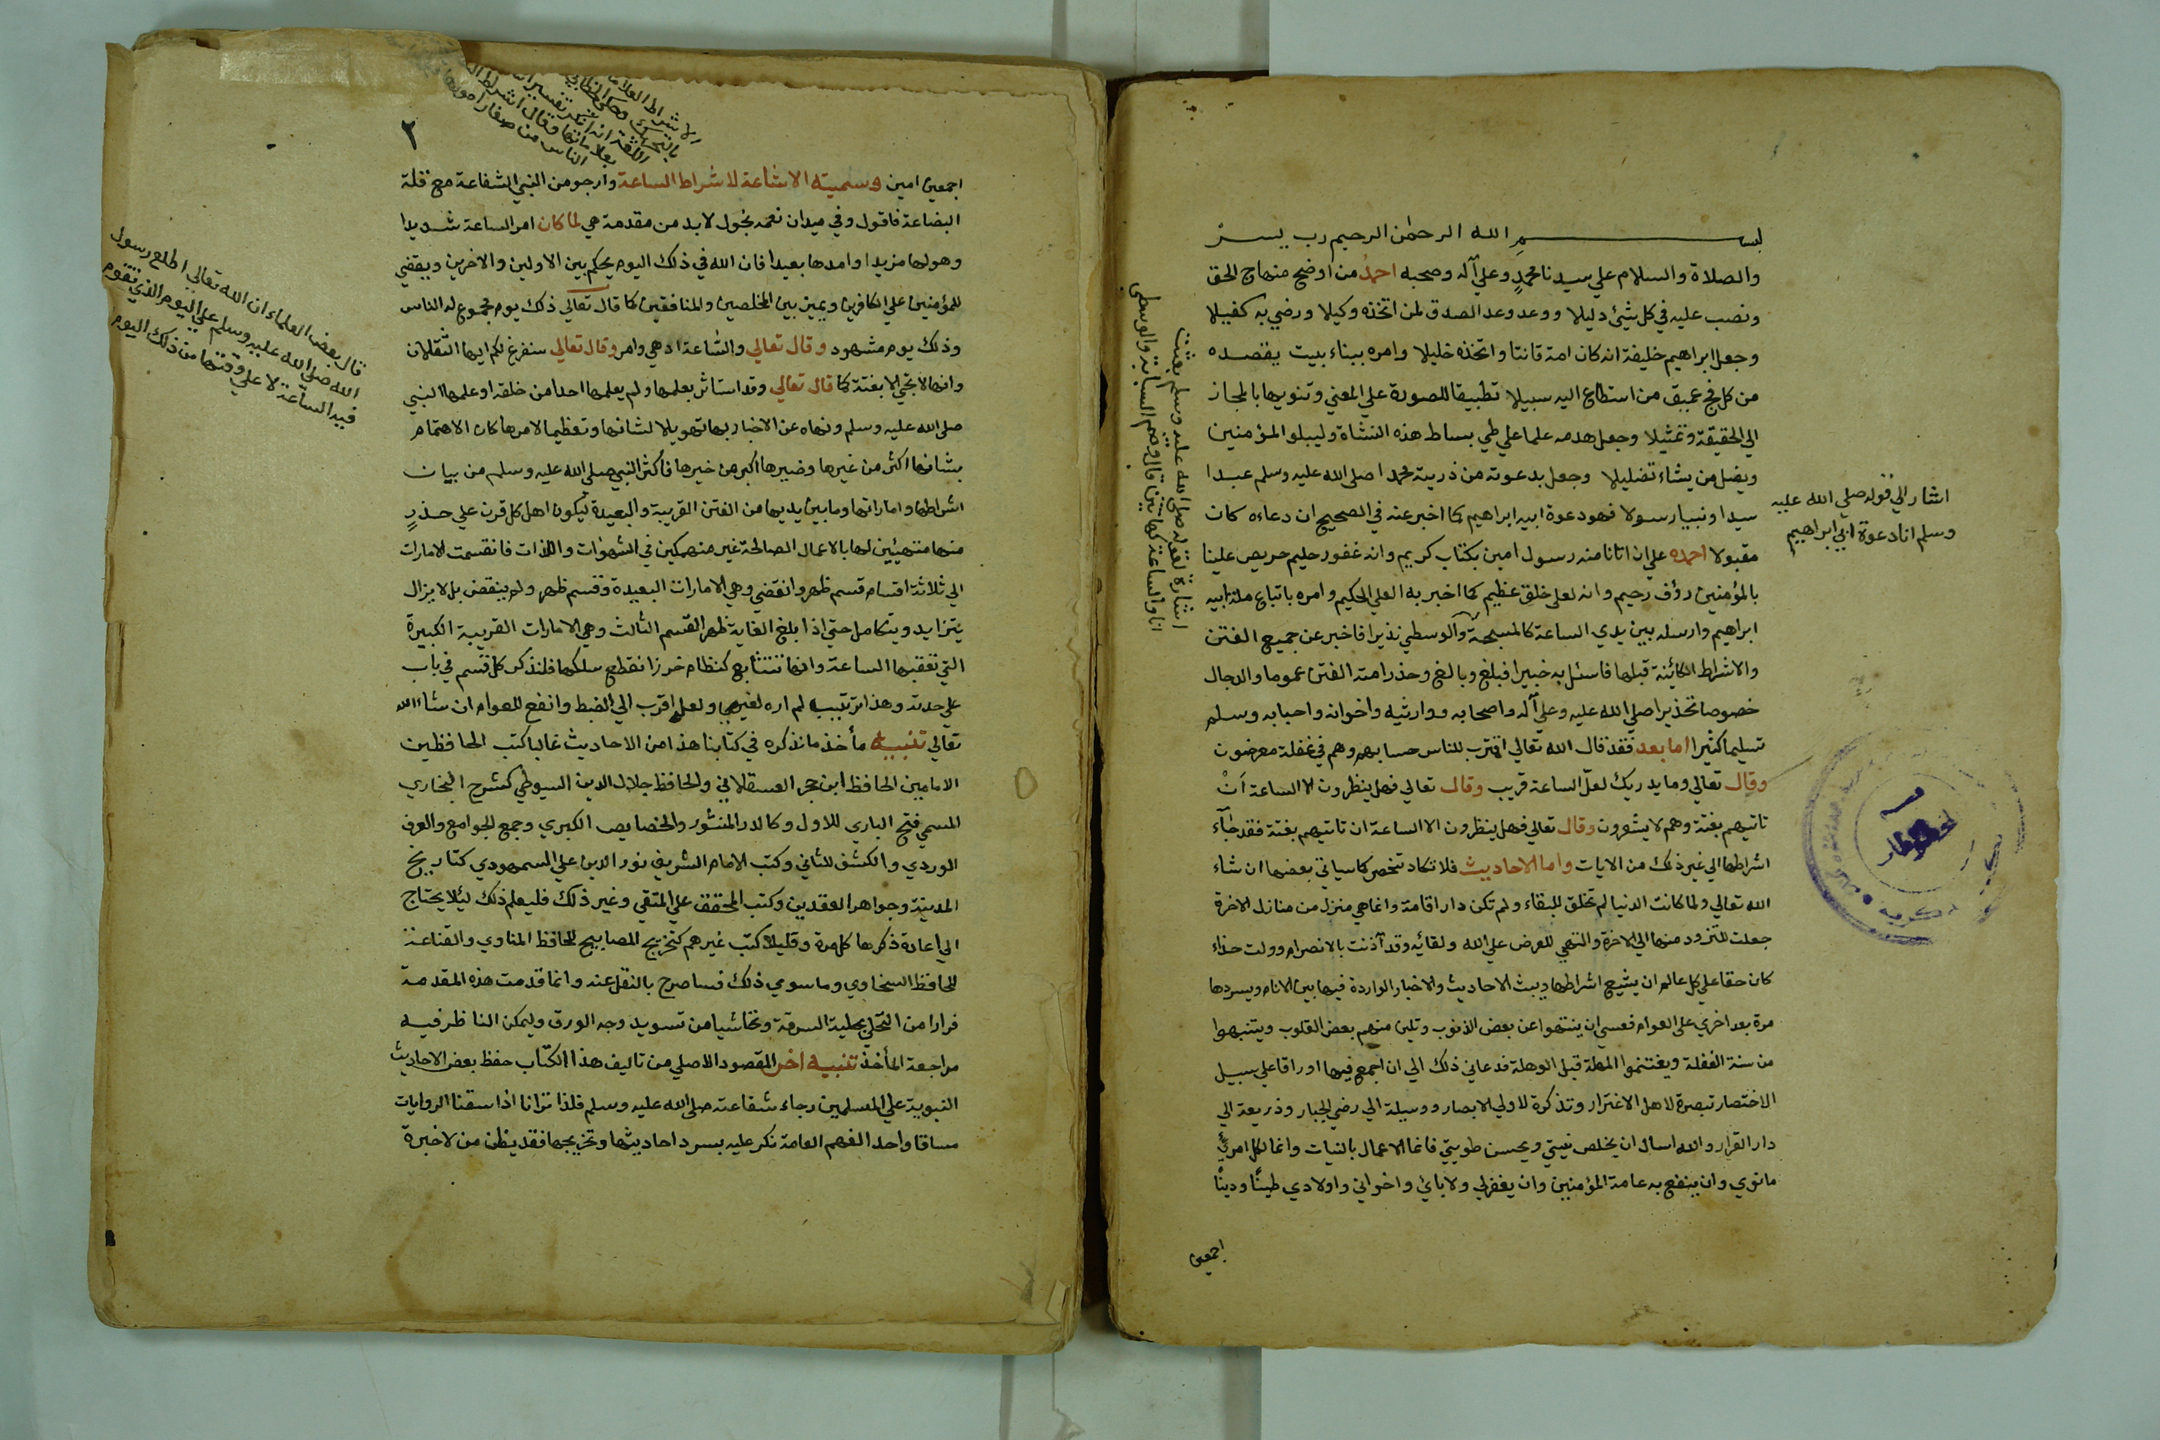 بسم الله الرحمن الرحيم رب يسر
والصلاة والسلام علي سيدنا محمد وعلي آله وصحبه احمد من اوضح منهاج الحق
ونصب عليه في كل شيئ دليلا ووعد وعد الصدق لمن اتخذه وكيلا ورضي به كفيلا
وجعل ابراهيم خليفة انه كان امة قانتا واتخذه خليلا وامره ببناء بيت يقصده
من كل فج عميق من استطاع اليه سبيلا تطبيقا للصورة علي المعني وتنويها بالمجاز
الي الحقيقة وتمثيلا وجعل هدمه علما علي طي بساط هذه النشاة وليبلو المؤمنين
ويضل من يشاء تضليلا وجعل بدعوته من ذريته محمدا صلى الله عليه وسلم عبدا
سيدا ونبيا رسولا فهو دعوة ابيه ابراهيم كما اخبر عنه في الصحيح ان دعاءه كان
مقبولا احمده علي ان اتانا منه رسول امين بكتاب كريم وانه غفور حليم حريص علينا
بالمؤمنين رؤف رحيم وانه لعلي خلق عظيم كما اخبر به العلي الحكيم وامره باتباع ملة ابيه
ابراهيم وارسله بين يدي الساعة كالمسبحة والوسطي نذيرا فاخبر عن جميع الفتن
والاشراط الكائنة قبلها فاسئل به خبيرا فبلغ وبالغ وحذر امته الفتن عموما والدجال
خصوصا تحذيرا صلي الله عليه وعلي آله واصحابه ووارثيه واخوانه واحبابه وسلم
تسليما كثيرا اما بعد فقد قال الله تعالي اقترب للناس حسابهم وهم في غفلة معرضون
وقال تعالي وما يدريك لعل الساعة قريب وقال تعالي فهل ينظرون الا الساعة أن
تاتيهم بغتة وهم لا يشعرون وقال تعالي فهل ينظرون الا الساعة ان تاتيهم بغتة فقد جآء
اشراطها الي غير ذلك من الايات واما الاحاديث فلا تكاد تنحصر كما سياتي بعضها ان شاء
الله تعالي ولما كانت الدنيا لم تخلق للبقاء ولم تكن دار اقامة وانما هي منزل من منازل الاخرة
جعلت للتزود منها الي الاخرة والتهي للعرض علي الله ولقائه وقد آذنت بالانصرام وولت حذاء
كان حقا علي كل عالم ان يشيع اشراطها ويبث الاحاديث والاخبار الواردة فيها بين الانام ويسردها
مرة بعد اخري علي العوام فعسي ان ينتهوا عن بعض الذنوب وتلين منهم بعض القلوب ويتنبهوا
من سنة الغفلة ويغتنموا المهلة قبل الوهلة فدعاني ذلك الي ان اجمع فيها اوراقا علي سبيل
الاختصار تبصرة لاهل الاغترار وتذكرة لاولي الابصار ووسيلة الي رضي الجبار وذريعة الي
دار القرار والله اسال ان يخلص نيتي ويحسن طويتي فانما الاعمال بالنيات وانما لكل امرئ
ما نوي وان ينفع به عامة المؤمنين وان يغفر لي ولاباي واخواني واولادي طينا ودينا
اجمعين
اشار الي قوله صلي الله عليه
وسلم انا دعوة ابي ابراهيم
اشارة لقوله صلى الله عليه وسلم بعثت
انا والساعة كهاتين قال وضم السبابة والوسطى
٢
اجمعين امين وسميته الاشاعة لاشراط الساعة وارجو من النبي الشفاعة مع قلة
البضاعة فاقول وفي ميدان نعمه نجول لا بد من مقدمة هي لما كان امر الساعة شديدا
وهولها مزيدا وامدها بعيدا فان الله في ذلك اليوم يحكم بين الاولين والاخرين ويقضي
للمؤمنين علي الكافرين ويميز بين المخلصين والمنافقين كما قال تعالي ذلك يوم مجموع له الناس
وذلك يوم مشهود وقال تعالي والساعة ادهي وامر وقال تعالي سنفرغ لكم ايها الثقلان
وانها لا تجئ الا بغتة كما قال تعالي وقد استاثر بعلمها ولم يعلمها احدا من خلقه او علمها النبي
صلى الله عليه وسلم ونهاه عن الاخبار بها تهويلا لشانها وتعظيما لامرها كان الاهتمام
بشانها اكثر من غيرها وضيرها اكبر من خيرها فاكثر النبي صلى الله عليه وسلم من بيان
اشراطها واماراتها وما بين يديها من الفتن القريبة والبعيدة ليكون اهل كل قرن علي حذر
منها متهيئين لها بالاعمال الصالحة غير منهمكين في الشهوات واللذات فانقسمت الامارات
الي ثلاثة اقسام قسم ظهر وانقضي وهي الامارات البعيدة وقسم ظهر ولم ينقض بل لا يزال
يتزايد ويتكامل حتي اذا بلغ الغاية ظهر القسم الثالث وهي الامارات القريبة الكبيرة
التي تعقبها الساعة وانها تتتابع كنظام خرز انقطع سلكها فلنذكر كل قسم في باب
علي حدته وهذا ترتيب لم اره لغيري ولعله اقرب الي الضبط وانفع للعوام ان شاالله
تعالي تنبيه مأخذ ما نذكره في كتابنا هذا من الاحاديث غالبا كتب الحافظين
الامامين الحافظ ابن حجر العسقلاني والحافظ جلال الدين السيوطي كشرح البخاري
المسمي فتح الباري للاول وكالدر المنثور والخصايص الكبري وجمع الجوامع والعرف
الوردي والكشف للثاني وكتب الامام الشريف نور الدين علي السمهودي كتاريخ
المدينة وجواهر العقدين وكتب المحقق علي المتقي وغير ذلك فليعلم ذلك ليلا يحتاج
الي اعادة ذكرها كل مرة وقليلا كتب غيرهم كتخريج المصابيح للحافظ المناوي والقناعة
للحافظ السخاوي وما سوي ذلك فساصرح بالنقل عنه وانما قدمت هذه المقدمة
فرارا من التحلي بحلية السرقة وتحاشيا من تسويد وجه الورق وليمكن الناظر فيه
مراجعة المأخذ تنبيه اخر المقصود الاصلي من تاليف هذا الكتاب حفظ بعض الاحاديث
النبوية علي المسلمين رجاء شفاعته صلى الله عليه وسلم فلذا ترانا اذا سقنا الروايات
مساقا واحدا لفهم العامة نكر عليه بسرد احاديثها وتخريجها فقد يظن من لا خبرة
قال بعض العلماء ان الله تعالى اطلع رسول
الله صلى الله عليه وسلم علي اليوم الذي تقوم
فيه الساعة لا علي وقتها من ذلك اليوم
الاشراط العلامات
بالتحريك وحكى الخطابي
اللغة انه انكر تفسير
بعلاماتها وقال اشراط
الناس من صغار امورها